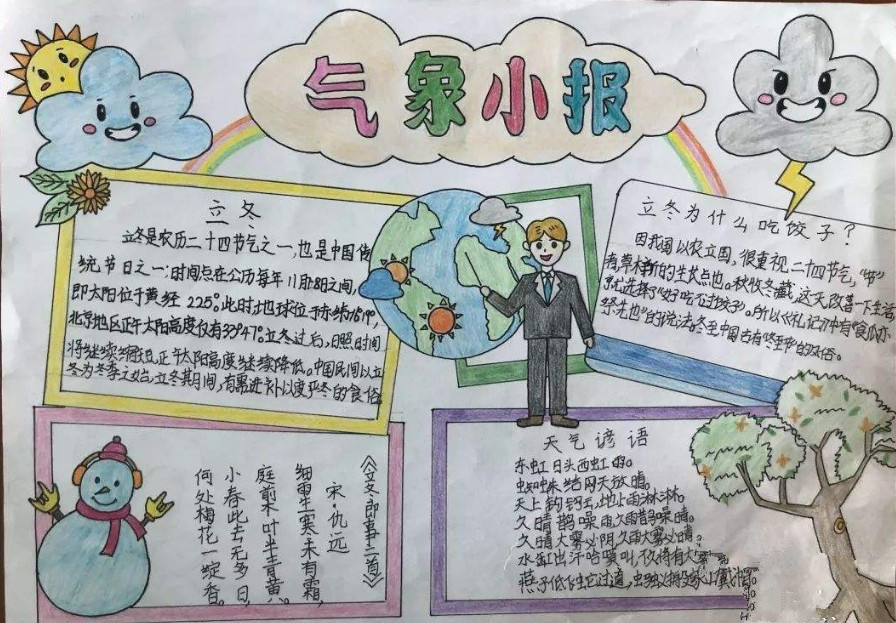 气象小报
立冬
立冬是农历二十四节气之一,也是中国传
统节日之一;时间点在公历每年11月7-8日之间,
即太阳位于黄经225°。此时,地球位于赤纬
北京地区正午太阳高度仅有33°47'。立冬过后,日照时间
将继续缩短,正午太阳高度继续降低。中国民间以立
冬为冬季之始,立冬其间,有 进补以度严冬的食俗
立冬为什么吃饺子?
因我国以农立国,很重视二十四节气,"节"
者,草木新的生长点也。秋收冬藏,这天,改善一下生活
就选择了"好吃不过饺子"。所以《礼记》中有
祭先也"的说法。冬至中国古有 的习俗。
《立冬即事二首》
宋·仇远
细雨生寒未有霜,
庭前木叶半青黄。
小春此去无多日,
何处梅花一绽香。
天气谚语
东虹日头西虹雨。
蜘蛛结网天放晴。
天上钩钩云,地上雨淋淋。
久晴鹊噪雨,久雨鹊噪晴。
久晴大雾必阴,久雨大雾必晴。
水缸出汗蛤蟆叫,不久将有大
燕子低